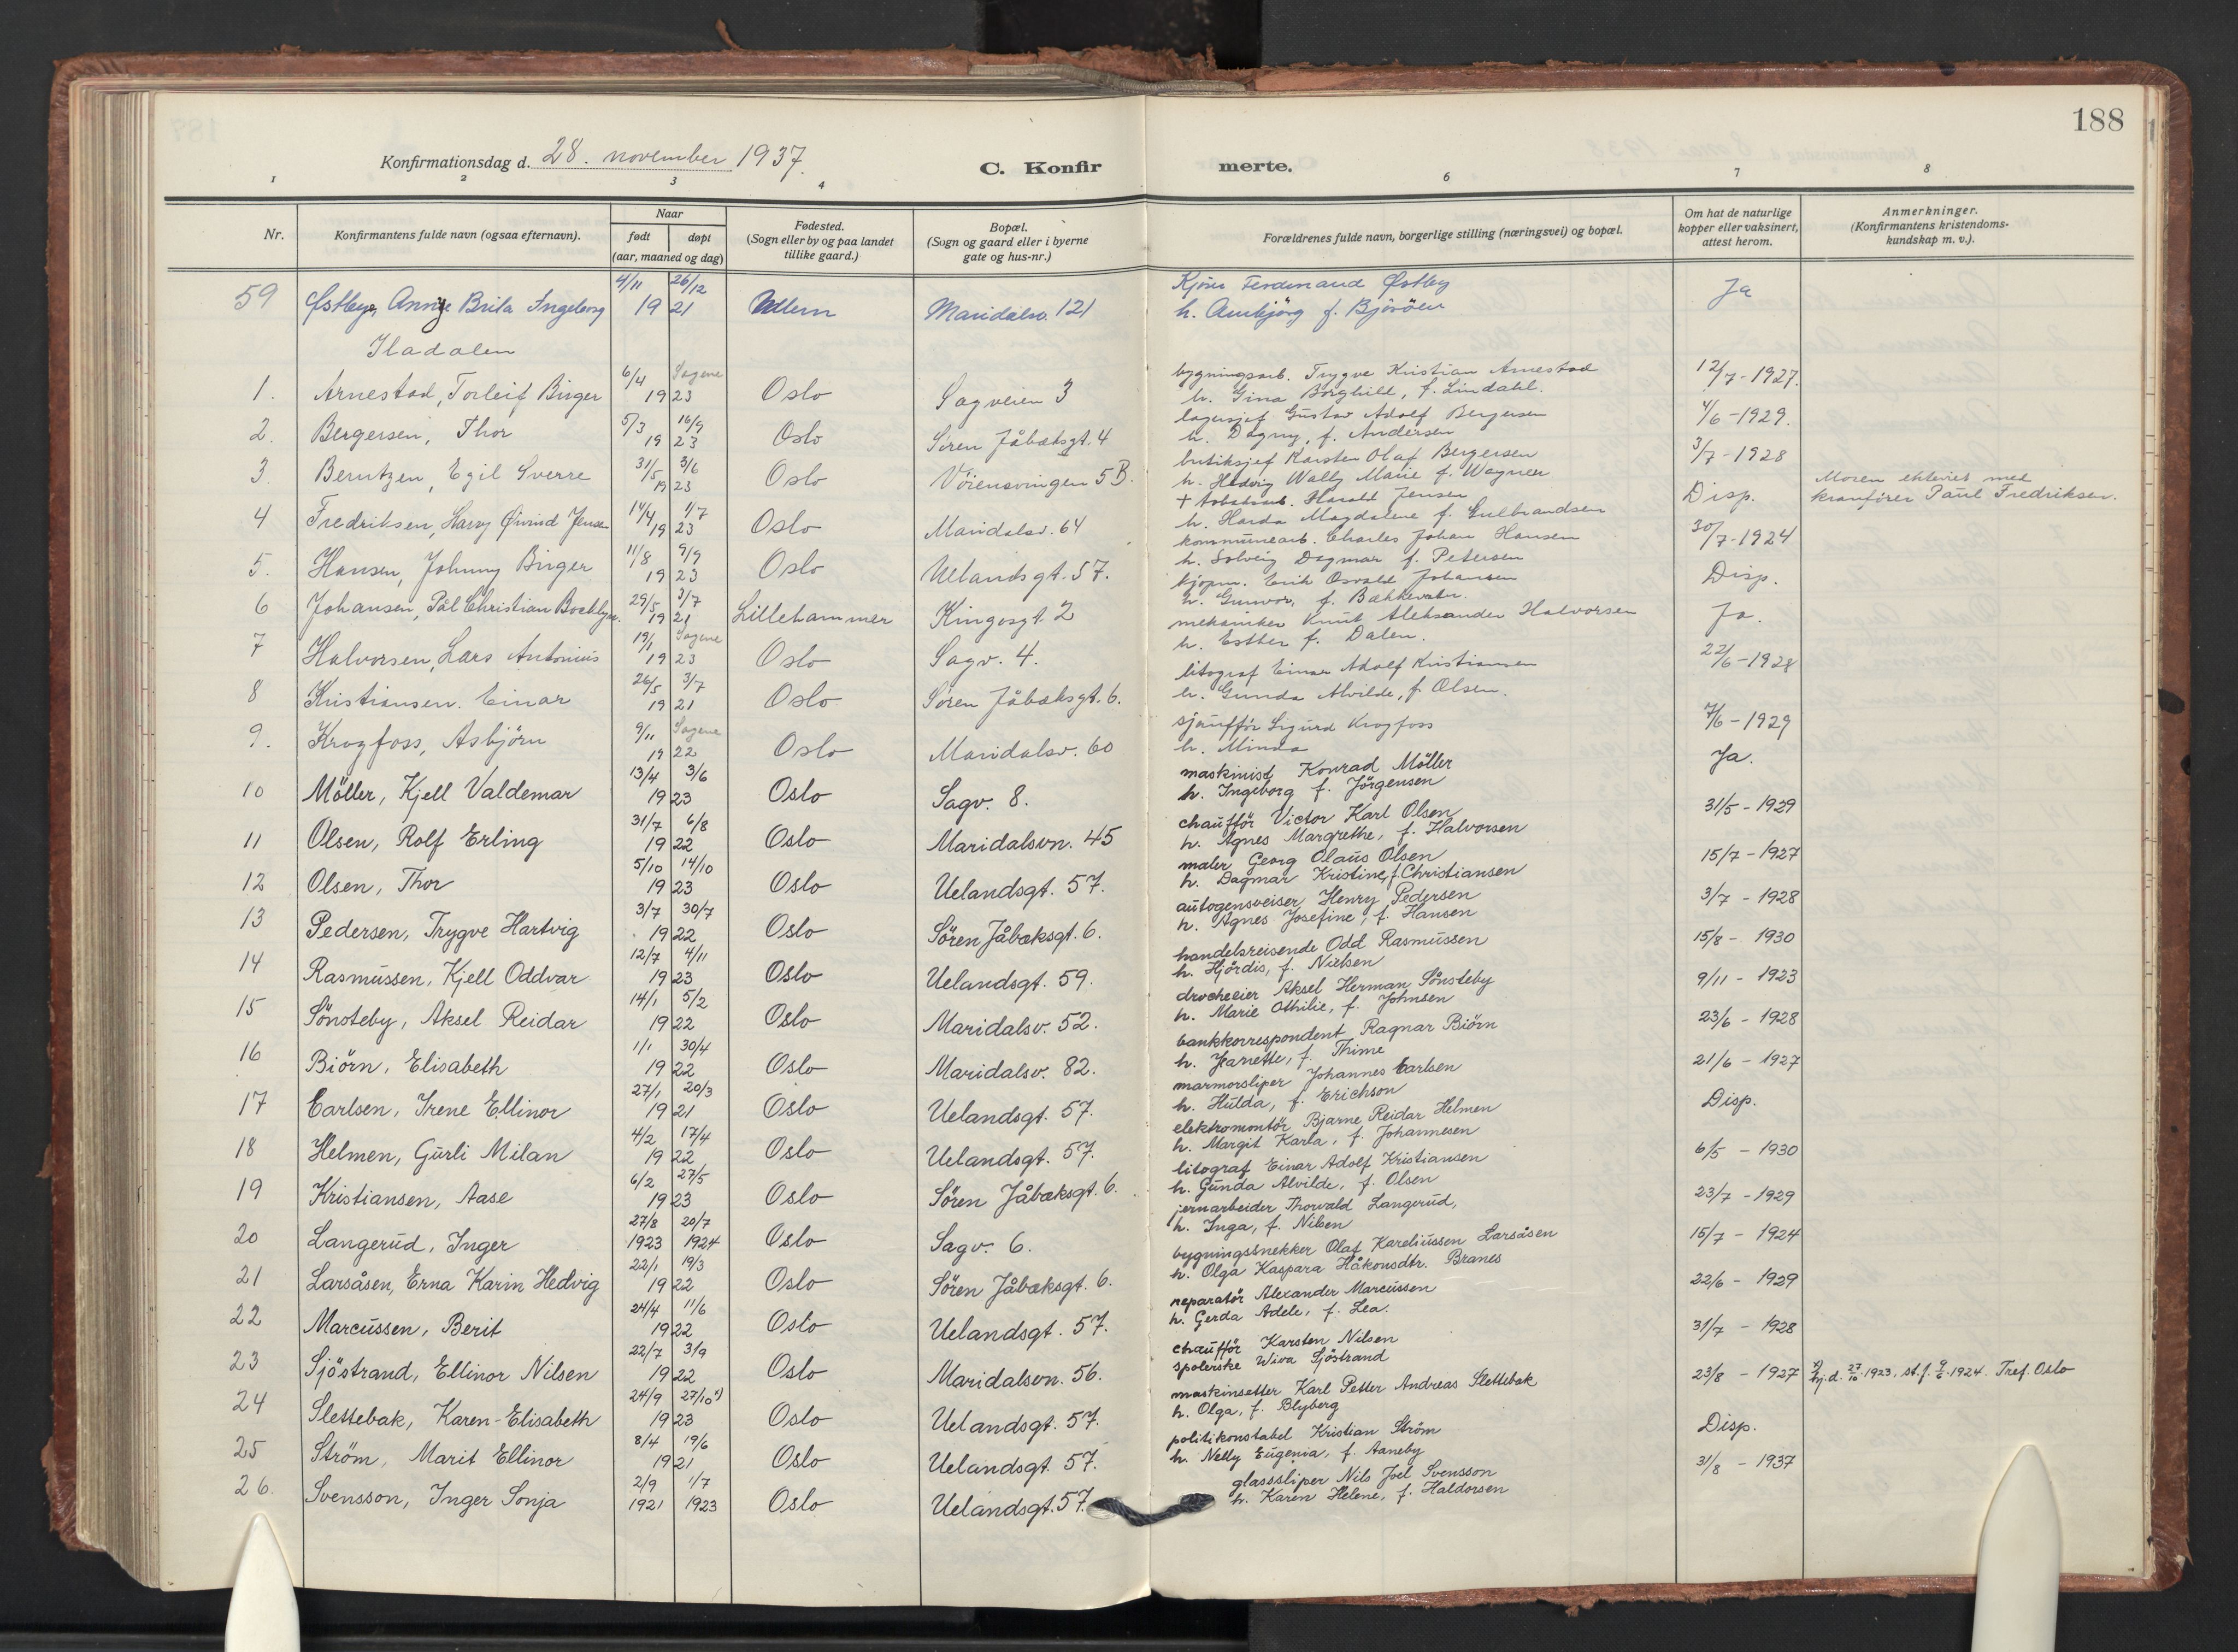 188
Konfirmationsdag d. 28. november 1937.
C. Konfirmerte.
1 2 3 4 6 7 8
Nr.
Konfirmantens fulde navn (ogsaa efternavn).
Naar
født døpt
(aar, maaned og dag)
Fødested.
(Sogn eller by og paa landet
tillike gaard.)
Bopæl.
(Sogn og gaard eller i byerne
gate og hus-nr.)
Forældrenes fulde navn, borgerlige stilling (næringsvei) og bopæl.
Om hat de naturlige
kopper eller vaksinert,
attest herom.
Anmerkninger.
(Konfirmantens kristendoms-
kundskap m. v.).
59 Østbye, Brita Ingeborg 4/11 26/12 19 21 Maridalsv. 121 Ferdinand Østby Ja
h. f.
Iladalen
1. Arnestad, Torleif Birger 6/4 Sagene 19 23 Oslo Sagveien 3 bygningsarb. Trygve Kristian Arnestad 12/7-1927.
h. Gina Borghild, f. Lindahl.
2. Bergersen, Thor 5/3 16/9 19 23 Oslo Sören Jåbæksgt. 4 lagersjef Gustav Adolf Bergersen 4/6-1929.
h. Dagny, f. Andersen
3. Berntzen, Egil Sverre 31/5 3/6 19 23 Oslo Vöiensvingen 5B. butiksjef Karsten Olaf Bergersen 3/7-1928
h. Hedvig Wally Marie f. Wagner
4 Fredriksen, Harry Öivind Jensen 14/4 1/7 19 23 Oslo Maridalsv. 64 + Harald Jensen Disp. Moren ekteviet med
kranförer Paul Fredriksen.
h. Magdalene f. Gulbrandsen
5. Hansen, Johnny Birger 11/8 9/9 19 23 Oslo Uelandsgt. 57. kommunearb. Charles Johan Hansen 30/7-1924
h. Solveig Dagmar f. Petersen
6 Johansen, Pål Christian 29/5 3/7 19 21 Lillehammer Kingosgt. 2 kjöpm. Erik Osvald Johansen Disp.
h. Gunvor, f.
7 Halvorsen, Lars Antonius 19/1 Sagene 19 23 Oslo Sagv. 4. mekaniker Knut Aleksander Halvorsen Ja.
h. Esther f. Dalen.
8 Kristiansen. Einar 26/5 3/7 19 21 Oslo Sören Jåbæksgt. 6. litograf Einar Adolf Kristiansen 22/6-1928
h. Gunda Alvilde, f. Olsen.
9. Krogfoss, Asbjörn 9/11 Sagene 19 22 Oslo Maridalsv. 60 sjaufför Sigurd Krogfoss 7/6-1929
h. Minda
10 Möller, Kjell Valdemar 13/4 3/6 19 23 Oslo Sagv. 8. maskinist Konrad Möller Ja.
h. Ingeborg f. Jörgensen
11 Olsen, Rolf Erling 31/7 6/8 19 22 Oslo Maridalsvn. 45 chaufför Victor Karl Olsen 31/5 - 1929
h. Agnes Margrethe, f. Halvorsen
12 Olsen, Thor 5/10 14/10 19 23 Oslo Uelandsgt. 57. maler Georg Olaus Olsen 15/7 - 1927
h. Dagmar Kristine, f. Christiansen
13 Pedersen, Trygve Hartvig 3/7 30/7 19 22 Oslo Sören Jåbæksgt. 6. autogensveiser Henry Pedersen 3/7 - 1928
h. Agnes Josefine, f. Hansen
14 Rasmussen, Kjell Oddvar 12/7 4/11 19 23 Oslo Uelandsgt. 59. handelsreisende Odd Rasmussen 15/8 - 1930
h. Hjördis, f. Nielsen
15 Sönsteby, Aksel Reidar 14/1 5/2 19 22 Oslo Maridalsv. 52. drocheeier Aksel Herman Sönsteby 9/11 - 1923
h. Marie Othilie, f. Johnsen
16 Biörn, Elisabeth 1/1 30/4 19 22 Oslo Maridalsv. 82. bankkorrespondent Ragnar Biörn 23/6 - 1928
h. Jeanette, f. Thime
17 Carlsen, Irene Ellinor 27/1 20/3 19 21 Oslo Uelandsgt. 57. marmorsliper Johannes Carlsen 21/6 - 1927
h. Hulda, f. Erichson
18 Helmen, Gurli Milan 4/2 17/4 19 22 Oslo Uelandsgt. 57. elektromontör Bjarne Reidar Helmen Disp.
h. Margit Karla, f. Johannesen
19 Kristiansen, Aase 6/2 27/5 19 23 Oslo Sören Jåbæksgt. 6. litograf Einar Adolf Kristiansen 6/5 - 1930
h. Gunda Alvilde, f. Olsen
20 Langerud, Inger 27/8 1923 20/7 1924 Oslo Sagv. 6. jernarbeider Thorvald Langerud, 23/7 - 1929
h. Inga, f. Nilsen
21 Larsåsen, Erna Karin Hedvig 22/1 19/3 19 22 Oslo Sören Jåbæksgt. 6. bygningssnekker Olaf Kareliussen Larsåsen 15/7 - 1924
h. Olga Kaspara Håkonsdtr. Branes
22 Marcussen, Berit 24/4 11/6 19 22 Oslo Uelandsgt. 57. reparatör Alexander Marcussen 22/6 - 1929
h. Gerda Adele, f. Lea.
23 Sjöstrand, Ellinor Nilsen 22/7 3/9 19 22 Oslo Maridalsvn. 56. chaufför Karsten Nilsen 31/7 - 1928
spolerske Wiva Sjöstrand
24 Slettebak, Karen-Elisabeth 24/9 27/10 x) 19 23 Oslo Uelandsgt. 57. maskinsetter Karl Petter Andreas Slettebak 23/8 - 1927 x) hj.d. 27/10 1923, st.f. 9/6 1924. Tref. Oslo
h. Olga, f. Blyberg
25 Ström, Marit Ellinor 8/4 19/6 19 21 Oslo Uelandsgt. 57. politikonstabel Kristian Ström Disp.
h. Nelly Eugenia, f. Aaneby
26. Svensson, Inger Sonja 2/9 1921 1/7 1923 Oslo Uelandsgt. 57. glasssliper Nils Joel Svensson 31/8 - 1937
h. Karen Helene, f. Haldorsen